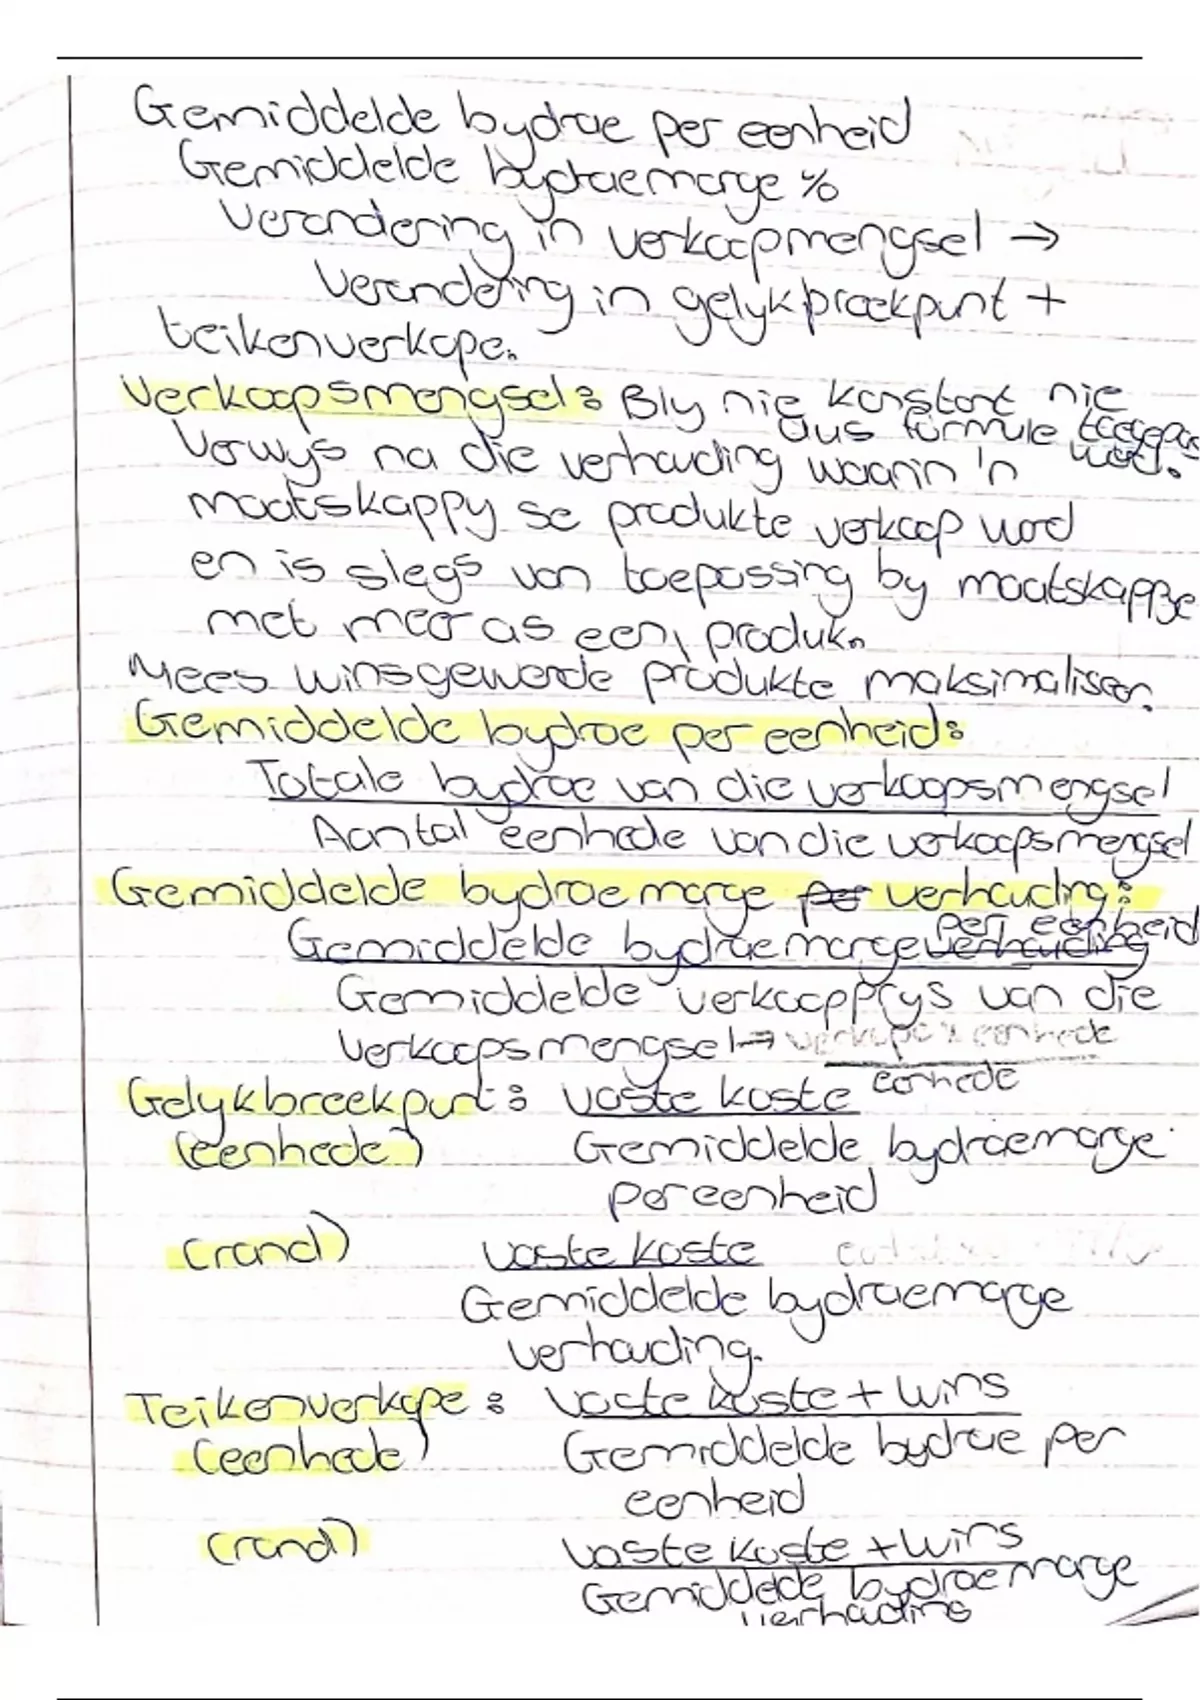 Gemiddelde bydrae per eenheid
Gemiddelde bydraemarge %
Verandering in verkoopmengsel →
Verandering in gelykbreekpunt +
teikenverkope.
Verkoopsmengsel: Bly nie konstant nie
dus formule toegepas
word.
Verwys na die verhouding waarin 'n
maatskappy se produkte verkoop word
en is slegs van toepassing by maatskappye
met meer as een produk.
Mees winsgewende produkte maksimaliseer.
Gemiddelde bydrae per eenheid:
Totale bydrae van die verkoopsmengsel
Aantal eenhede van die verkoopsmengsel
Gemiddelde bydraemarge per verhouding:
per eenheid
Gemiddelde bydraemarge verhouding
Gemiddelde verkoopprys van die
verkoopsmengsel → verkope x eenhede
eenhede
Gelykbreekpunt: vaste koste
(eenhede) Gemiddelde bydraemarge
per eenheid
(rand) vaste koste
Gemiddelde bydraemarge
verhouding.
Teikenverkope: Vaste koste + wins
(eenhede) Gemiddelde bydrae per
eenheid
(rand) Vaste koste + wins
Gemiddelde bydraemarge
verhouding